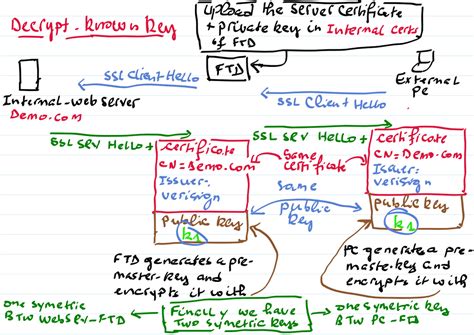 Decrypt - known key
upload the server certificate
+ private key in Internal Certs
of FTD
FTD
External
PC
SSL Client Hello
SSL Client Hello
Internal-web server
Demo.com
SSL Serv Hello +
SSL Serv Hello +
certificate
CN=Demo.com
Issuer:
verisign
Public key
k1
same
certificate
same
public
key
certificate
CN=Demo.com
Issuer:
verisign
public key
k1
FTD generates a pre-
master-key and
encrypts it with
PC generates a pre-
master-key and
encrypts it with
one symetric
BTW WebServ-FTD
Finally we have
Two symetric keys
one symetric key
BTW PC-FTD